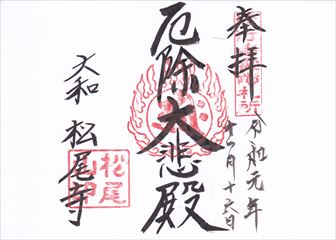 奉拝
令和元年
十一月十六日
厄除大悲殿
大和 松尾寺
松尾山印